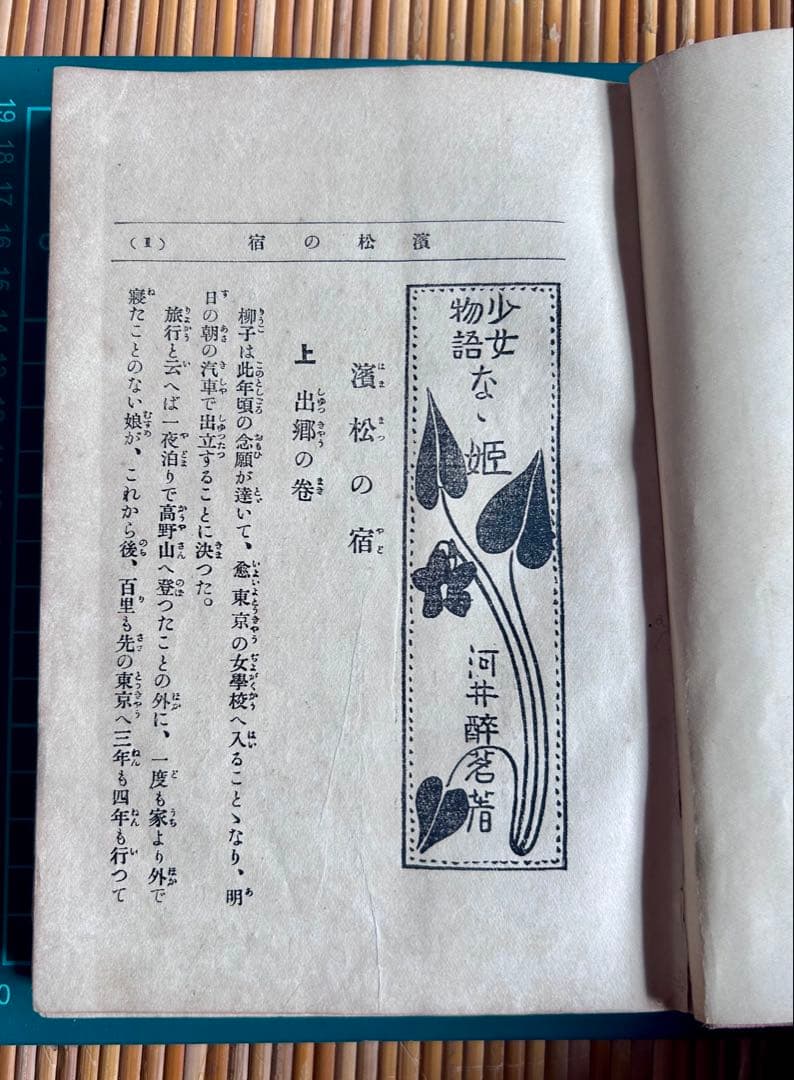 濱松の宿
少女
物語
なゝ姫
河井醉茗著
濱松の宿
上 出郷の卷
柳子は此年頃の念願が達いて、愈東京の女學校へ入ることゝなり、明
日の朝の汽車で出立することに決つた。
旅行と云へば一夜泊りで高野山へ登つたことの外に、一度も家より外で
寢たことのない娘が、これから後、百里も先の東京へ三年も四年も行つて
19
18
17
16
0